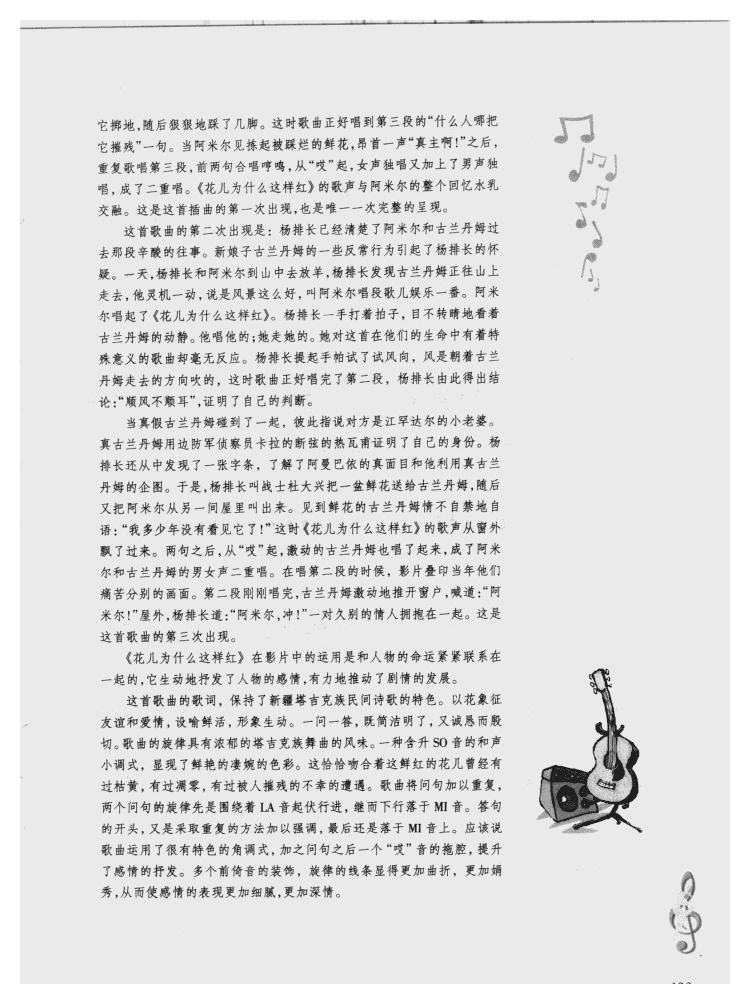 它掷地,随后狠狠地踩了几脚。这时歌曲正好唱到第三段的“什么人哪把
它摧残”一句。当阿米尔见拣起被踩烂的鲜花,昂首一声“真主啊!”之后,
重复歌唱第三段,前两句合唱哼鸣,从“哎”起,女声独唱又加上了男声独
唱,成了二重唱。《花儿为什么这样红》的歌声与阿米尔的整个回忆水乳
交融。这是这首插曲的第一次出现,也是唯一一次完整的呈现。
这首歌曲的第二次出现是:杨排长已经清楚了阿米尔和古兰丹姆过
去那段辛酸的往事。新娘子古兰丹姆的一些反常行为引起了杨排长的怀
疑。一天,杨排长和阿米尔到山中去放羊,杨排长发现古兰丹姆正往山上
走去,他灵机一动,说是风景这么好,叫阿米尔唱段歌儿娱乐一番。阿米
尔唱起了《花儿为什么这样红》。杨排长一手打着拍子,目不转睛地看着
古兰丹姆的动静。他唱他的;她走她的。她对这首在他们的生命中有着特
殊意义的歌曲却毫无反应。杨排长提起手帕试了试风向,风是朝着古兰
丹姆走去的方向吹的,这时歌曲正好唱完了第二段,杨排长由此得出结
论:“顺风不顺耳”,证明了自己的判断。
当真假古兰丹姆碰到了一起,彼此指说对方是江罕达尔的小老婆。
真古兰丹姆用边防军侦察员卡拉的断弦的热瓦甫证明了自己的身份。杨
排长还从中发现了一张字条,了解了阿曼巴依的真面目和他利用真古兰
丹姆的企图。于是,杨排长叫战士杜大兴把一盆鲜花送给古兰丹姆,随后
又把阿米尔从另一间屋里叫出来。见到鲜花的古兰丹姆情不自禁地自
语:“我多少年没有看见它了!”这时《花儿为什么这样红》的歌声从窗外
飘了过来。两句之后,从“哎”起,激动的古兰丹姆也唱了起来,成了阿米
尔和古兰丹姆的男女声二重唱。在唱第二段的时候,影片叠印当年他们
痛苦分别的画面。第二段刚刚唱完,古兰丹姆激动地推开窗户,喊道:“阿
米尔!”屋外,杨排长道:“阿米尔,冲!”一对久别的情人拥抱在一起。这是
这首歌曲的第三次出现。
《花儿为什么这样红》在影片中的运用是和人物的命运紧紧联系在
一起的,它生动地抒发了人物的感情,有力地推动了剧情的发展。
这首歌曲的歌词,保持了新疆塔吉克族民间诗歌的特色。以花象征
友谊和爱情,设喻鲜活,形象生动。一问一答,既简洁明了,又诚恳而殷
切。歌曲的旋律具有浓郁的塔吉克族舞曲的风味。一种含升 SO 音的和声
小调式,显现了鲜艳的凄婉的色彩。这恰恰吻合着这鲜红的花儿曾经有
过枯黄,有过凋零,有过被人摧残的不幸的遭遇。歌曲将问句加以重复,
两个问句的旋律先是围绕着 LA 音起伏行进,继而下行落于 MI 音。答句
的开头,又是采取重复的方法加以强调,最后还是落于 MI 音上。应该说
歌曲运用了很有特色的角调式,加之问句之后一个“哎”音的拖腔,提升
了感情的抒发。多个前倚音的装饰,旋律的线条显得更加曲折,更加娟
秀,从而使感情的表现更加细腻,更加深情。